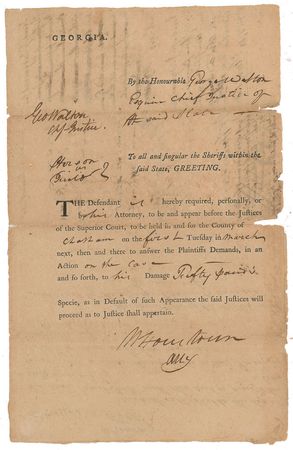 GEORGIA.
By the Honourable George Walton
Esquire Chief Justice of
the said State
Geo Walton
Chf Justice.
vs
To all and singular the Sheriffs within the
said State, GREETING.
THE Defendant is hereby required, personally, or
by his Attorney, to be and appear before the Justices
of the Superior Court, to be held in and for the County of
Chatham on the first Tuesday in March
next, then and there to answer the Plaintiffs Demands, in an
Action on the Case
and so forth, to his Damage Fifty pounds
Specie, as in Default of such Appearance the said Justices will
proceed as to Justice shall appertain.
Atty